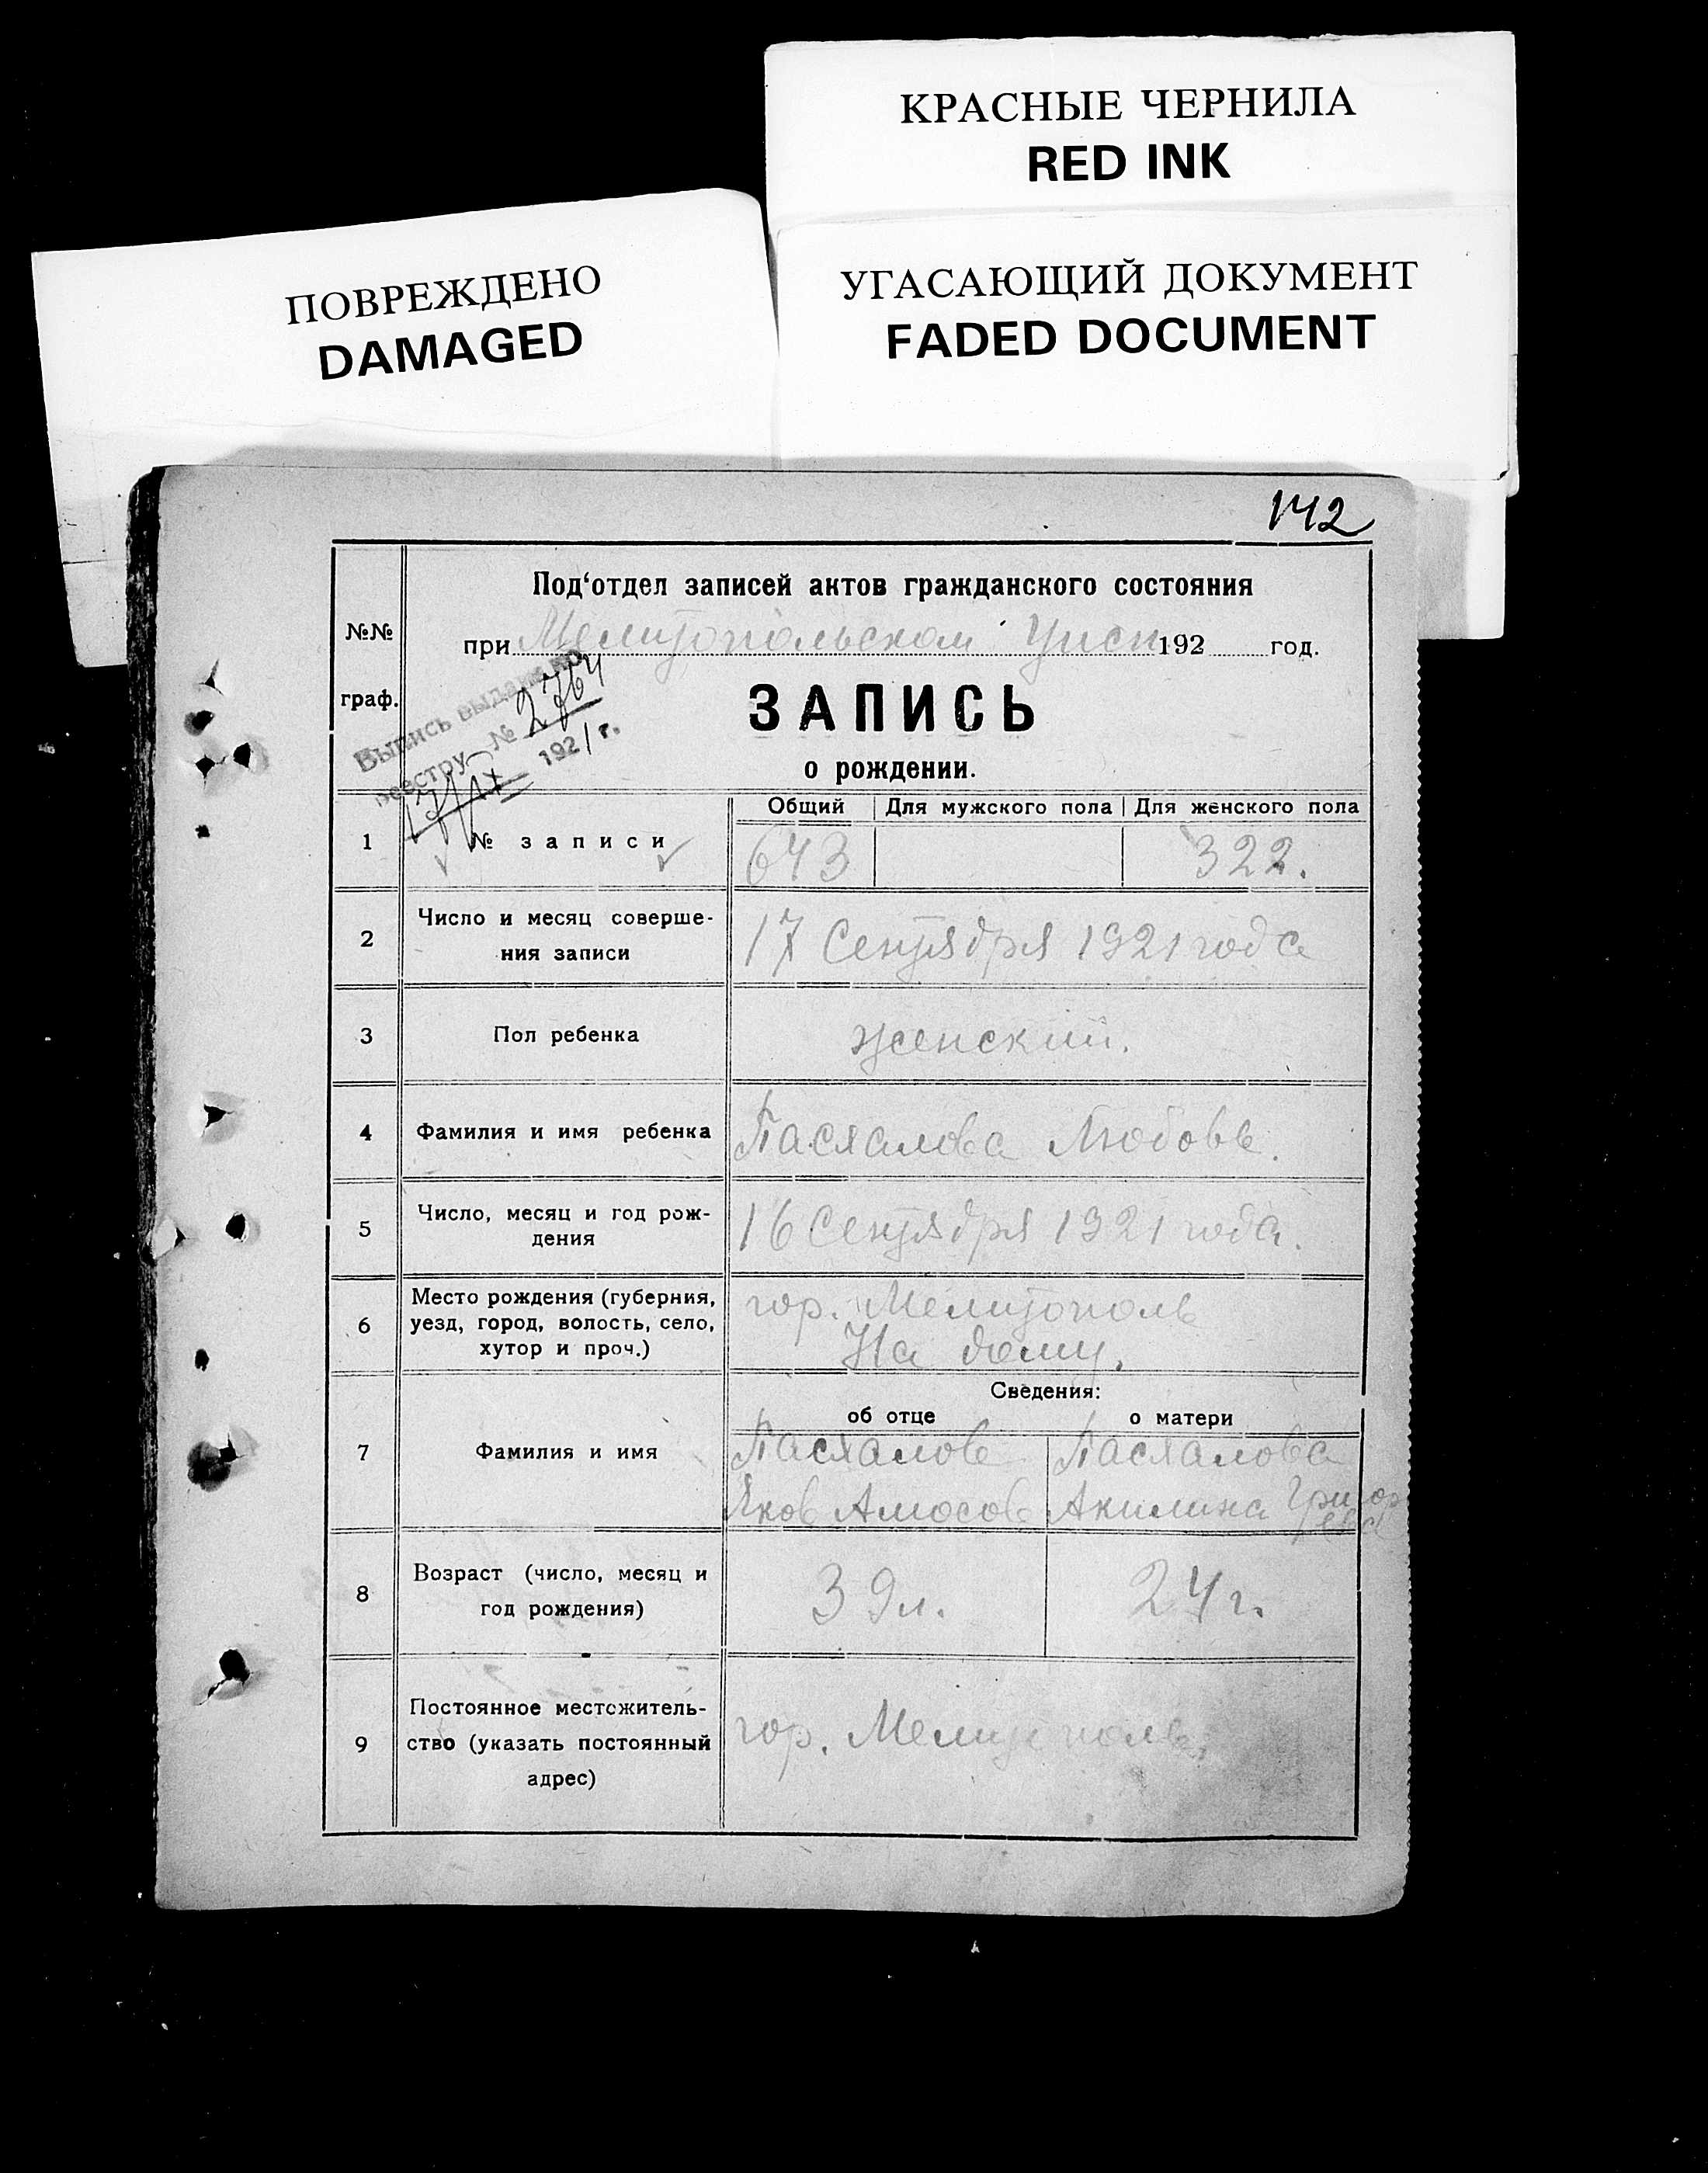 КРАСНЫЕ ЧЕРНИЛА
RED INK
ПОВРЕЖДЕНО
DAMAGED
УГАСАЮЩИЙ ДОКУМЕНТ
FADED DOCUMENT
142
№№ граф.
Под‘отдел записей актов гражданского состояния
при Мелитопольском Уисп 192 год.
Выпись выдана по
реестру № 2764
1921 г.
ЗАПИСЬ
о рождении.
Общий Для мужского пола Для женского пола
1 № записи 643 322.
2 Число и месяц соверше-
ния записи
17 Сентября 1921 года
3 Пол ребенка женский.
4 Фамилия и имя ребенка Пасхалова Любовь.
5 Число, месяц и год рож-
дения
16 Сентября 1921 года.
6 Место рождения (губерния,
уезд, город, волость, село,
хутор и проч.)
гор. Мелитополь
На дому.
Сведения:
об отце о матери
7 Фамилия и имя
Пасхалов
Яков Амосов
Пасхалова
Акилина Григор
евна
8 Возраст (число, месяц и
год рождения)
39 л. 24 г.
9 Постоянное местожитель-
ство (указать постоянный
адрес)
гор. Мелитополь.